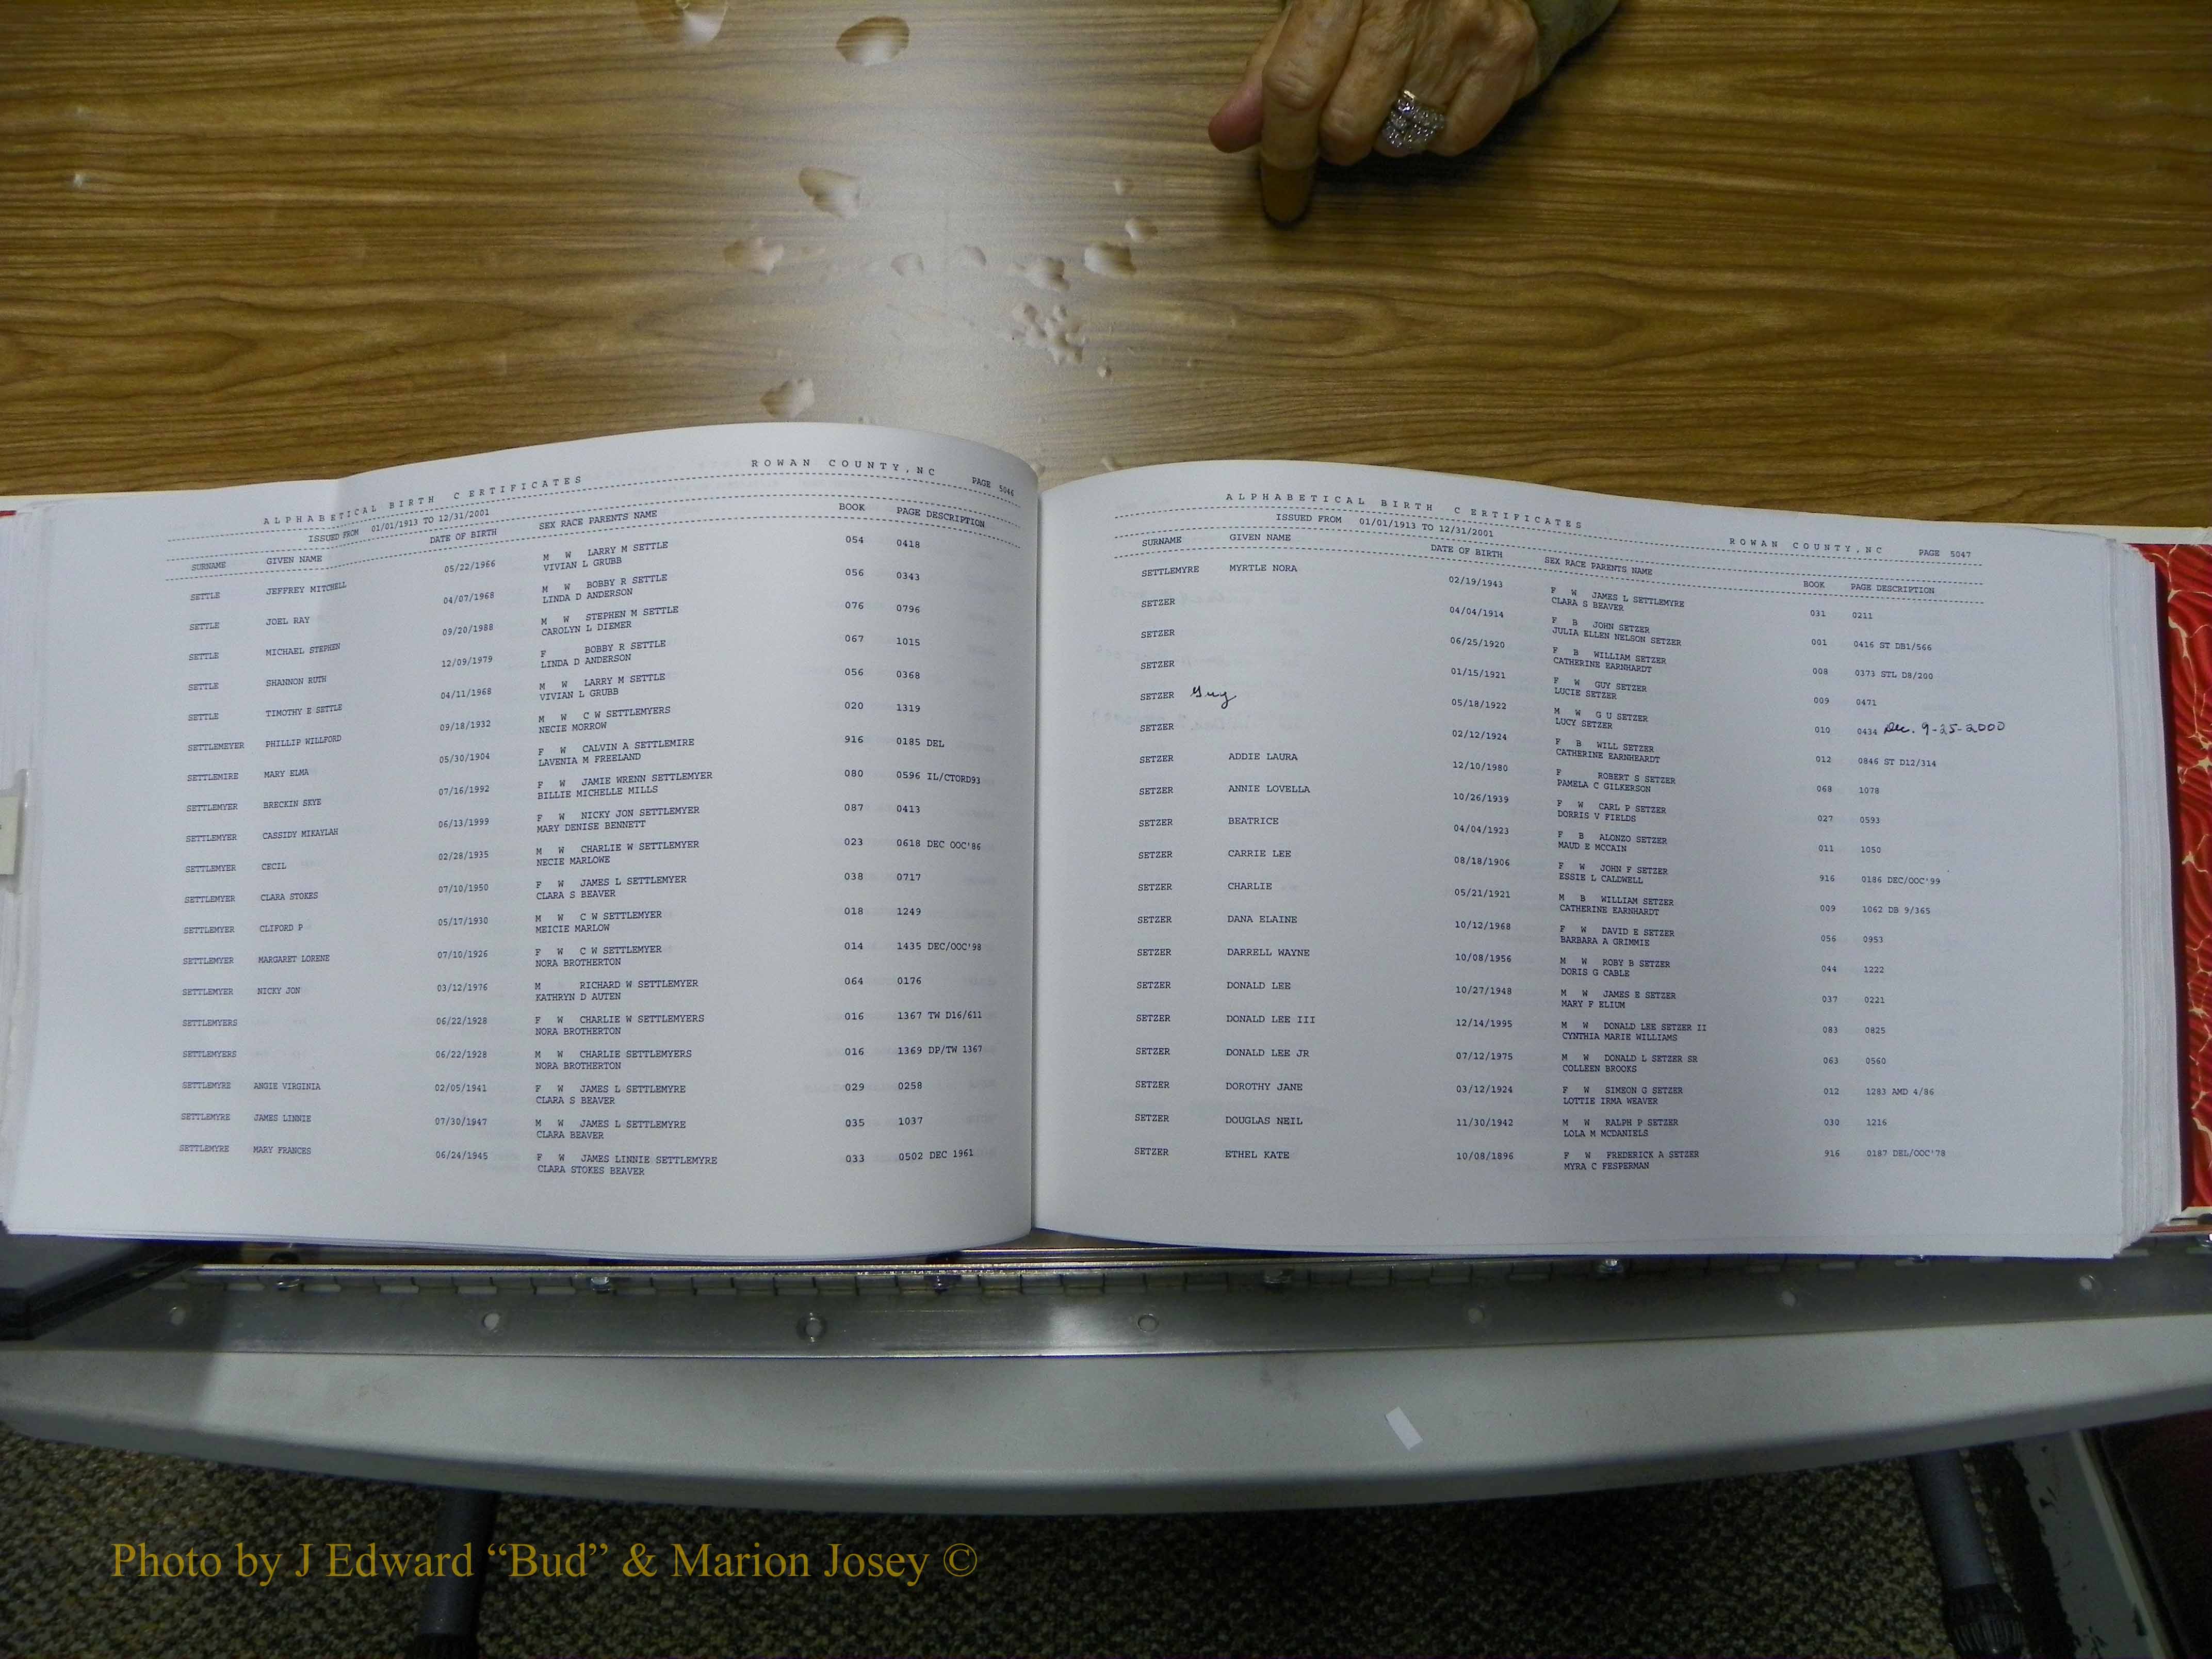 ALPHABETICAL BIRTH CERTIFICATES ROWAN COUNTY, NC PAGE 5046
ISSUED FROM 01/01/1913 TO 12/31/2001
SURNAME GIVEN NAME DATE OF BIRTH SEX RACE PARENTS NAME BOOK PAGE DESCRIPTION
SETTLE JEFFREY MITCHELL 05/22/1966 M W LARRY M SETTLE 054 0418
VIVIAN L GRUBB
SETTLE JOEL RAY 04/07/1968 M W BOBBY R SETTLE 056 0343
LINDA D ANDERSON
SETTLE MICHAEL STEPHEN 09/20/1988 M W STEPHEN M SETTLE 076 0796
CAROLYN L DIEMER
SETTLE SHANNON RUTH 12/09/1979 F BOBBY R SETTLE 067 1015
LINDA D ANDERSON
SETTLE TIMOTHY E SETTLE 04/11/1968 M W LARRY M SETTLE 056 0368
VIVIAN L GRUBB
SETTLEMEYER PHILLIP WILLFORD 09/18/1932 M W C W SETTLEMYERS 020 1319
NECIE MORROW
SETTLEMIRE MARY ELMA 05/30/1904 F W CALVIN A SETTLEMIRE 916 0185 DEL
LAVENIA M FREELAND
SETTLEMYER BRECKIN SKYE 07/16/1992 F W JAMIE WRENN SETTLEMYER 080 0596 IL/CTORD93
BILLIE MICHELLE MILLS
SETTLEMYER CASSIDY MIKAYLAH 06/13/1999 F W NICKY JON SETTLEMYER 087 0413
MARY DENISE BENNETT
SETTLEMYER CECIL 02/28/1935 M W CHARLIE W SETTLEMYER 023 0618 DEC OOC'86
NECIE MARLOWE
SETTLEMYER CLARA STOKES 07/10/1950 F W JAMES L SETTLEMYER 038 0717
CLARA S BEAVER
SETTLEMYER CLIFORD P 05/17/1930 M W C W SETTLEMYER 018 1249
MEICIE MARLOW
SETTLEMYER MARGARET LORENE 07/10/1926 F W C W SETTLEMYER 014 1435 DEC/OOC'98
NORA BROTHERTON
SETTLEMYER NICKY JON 03/12/1976 M RICHARD W SETTLEMYER 064 0176
KATHRYN D AUTEN
SETTLEMYERS 06/22/1928 F W CHARLIE W SETTLEMYERS 016 1367 TW D16/611
NORA BROTHERTON
SETTLEMYERS 06/22/1928 M W CHARLIE SETTLEMYERS 016 1369 DP/TW 1367
NORA BROTHERTON
SETTLEMYRE ANGIE VIRGINIA 02/05/1941 F W JAMES L SETTLEMYRE 029 0258
CLARA S BEAVER
SETTLEMYRE JAMES LINNIE 07/30/1947 M W JAMES L SETTLEMYRE 035 1037
CLARA BEAVER
SETTLEMYRE MARY FRANCES 06/24/1945 F W JAMES LINNIE SETTLEMYRE 033 0502 DEC 1961
CLARA STOKES BEAVER
ALPHABETICAL BIRTH CERTIFICATES ROWAN COUNTY, NC PAGE 5047
ISSUED FROM 01/01/1913 TO 12/31/2001
SURNAME GIVEN NAME DATE OF BIRTH SEX RACE PARENTS NAME BOOK PAGE DESCRIPTION
SETTLEMYRE MYRTLE NORA 02/19/1943 F W JAMES L SETTLEMYRE 031 0211
CLARA S BEAVER
SETZER 04/04/1914 F B JOHN SETZER 001 0416 ST DB1/566
JULIA ELLEN NELSON SETZER
SETZER 06/25/1920 F B WILLIAM SETZER 008 0373 STL D8/200
CATHERINE EARNHARDT
SETZER 01/15/1921 F W GUY SETZER 009 0471
LUCIE SETZER
SETZER Guy 05/18/1922 M W G U SETZER 010 0434 Dec. 9-25-2000
LUCY SETZER
SETZER 02/12/1924 F B WILL SETZER 012 0846 ST D12/314
CATHERINE EARNHEARDT
SETZER ADDIE LAURA 12/10/1980 F ROBERT S SETZER 068 1078
PAMELA C GILKERSON
SETZER ANNIE LOVELLA 10/26/1939 F W CARL P SETZER 027 0593
DORRIS V FIELDS
SETZER BEATRICE 04/04/1923 F B ALONZO SETZER 011 1050
MAUD E MCCAIN
SETZER CARRIE LEE 08/18/1906 F W JOHN F SETZER 916 0186 DEC/OOC'99
ESSIE L CALDWELL
SETZER CHARLIE 05/21/1921 M B WILLIAM SETZER 009 1062 DB 9/365
CATHERINE EARNHARDT
SETZER DANA ELAINE 10/12/1968 F W DAVID E SETZER 056 0953
BARBARA A GRIMMIE
SETZER DARRELL WAYNE 10/08/1956 M W ROBY B SETZER 044 1222
DORIS G CABLE
SETZER DONALD LEE 10/27/1948 M W JAMES E SETZER 037 0221
MARY F ELIUM
SETZER DONALD LEE III 12/14/1995 M W DONALD LEE SETZER II 083 0825
CYNTHIA MARIE WILLIAMS
SETZER DONALD LEE JR 07/12/1975 M W DONALD L SETZER SR 063 0560
COLLEEN BROOKS
SETZER DOROTHY JANE 03/12/1924 F W SIMEON G SETZER 012 1283 AMD 4/86
LOTTIE IRMA WEAVER
SETZER DOUGLAS NEIL 11/30/1942 M W RALPH P SETZER 030 1216
LOLA M MCDANIELS
SETZER ETHEL KATE 10/08/1896 F W FREDERICK A SETZER 916 0187 DEL/OOC'78
MYRA C FESPERMAN
Photo by J Edward “Bud” & Marion Josey ©